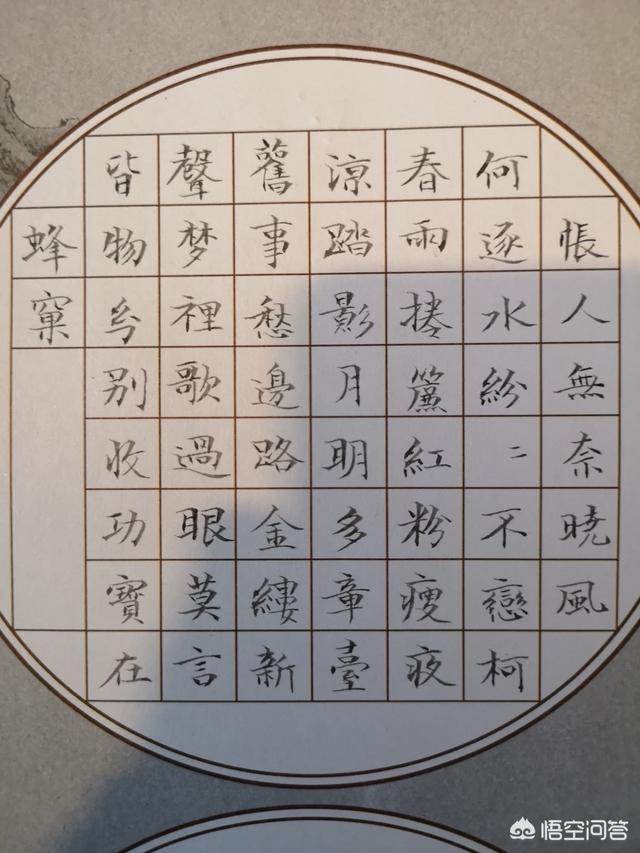 帳人無奈暁風
何逐水紛二不戀柯
春雨捲簾紅粉瘦夜
涼踏影月明多章臺
舊事愁邊路金縷新
聲梦裡歌過眼莫言
皆物別收功寶在
蜂窠
悟空问答